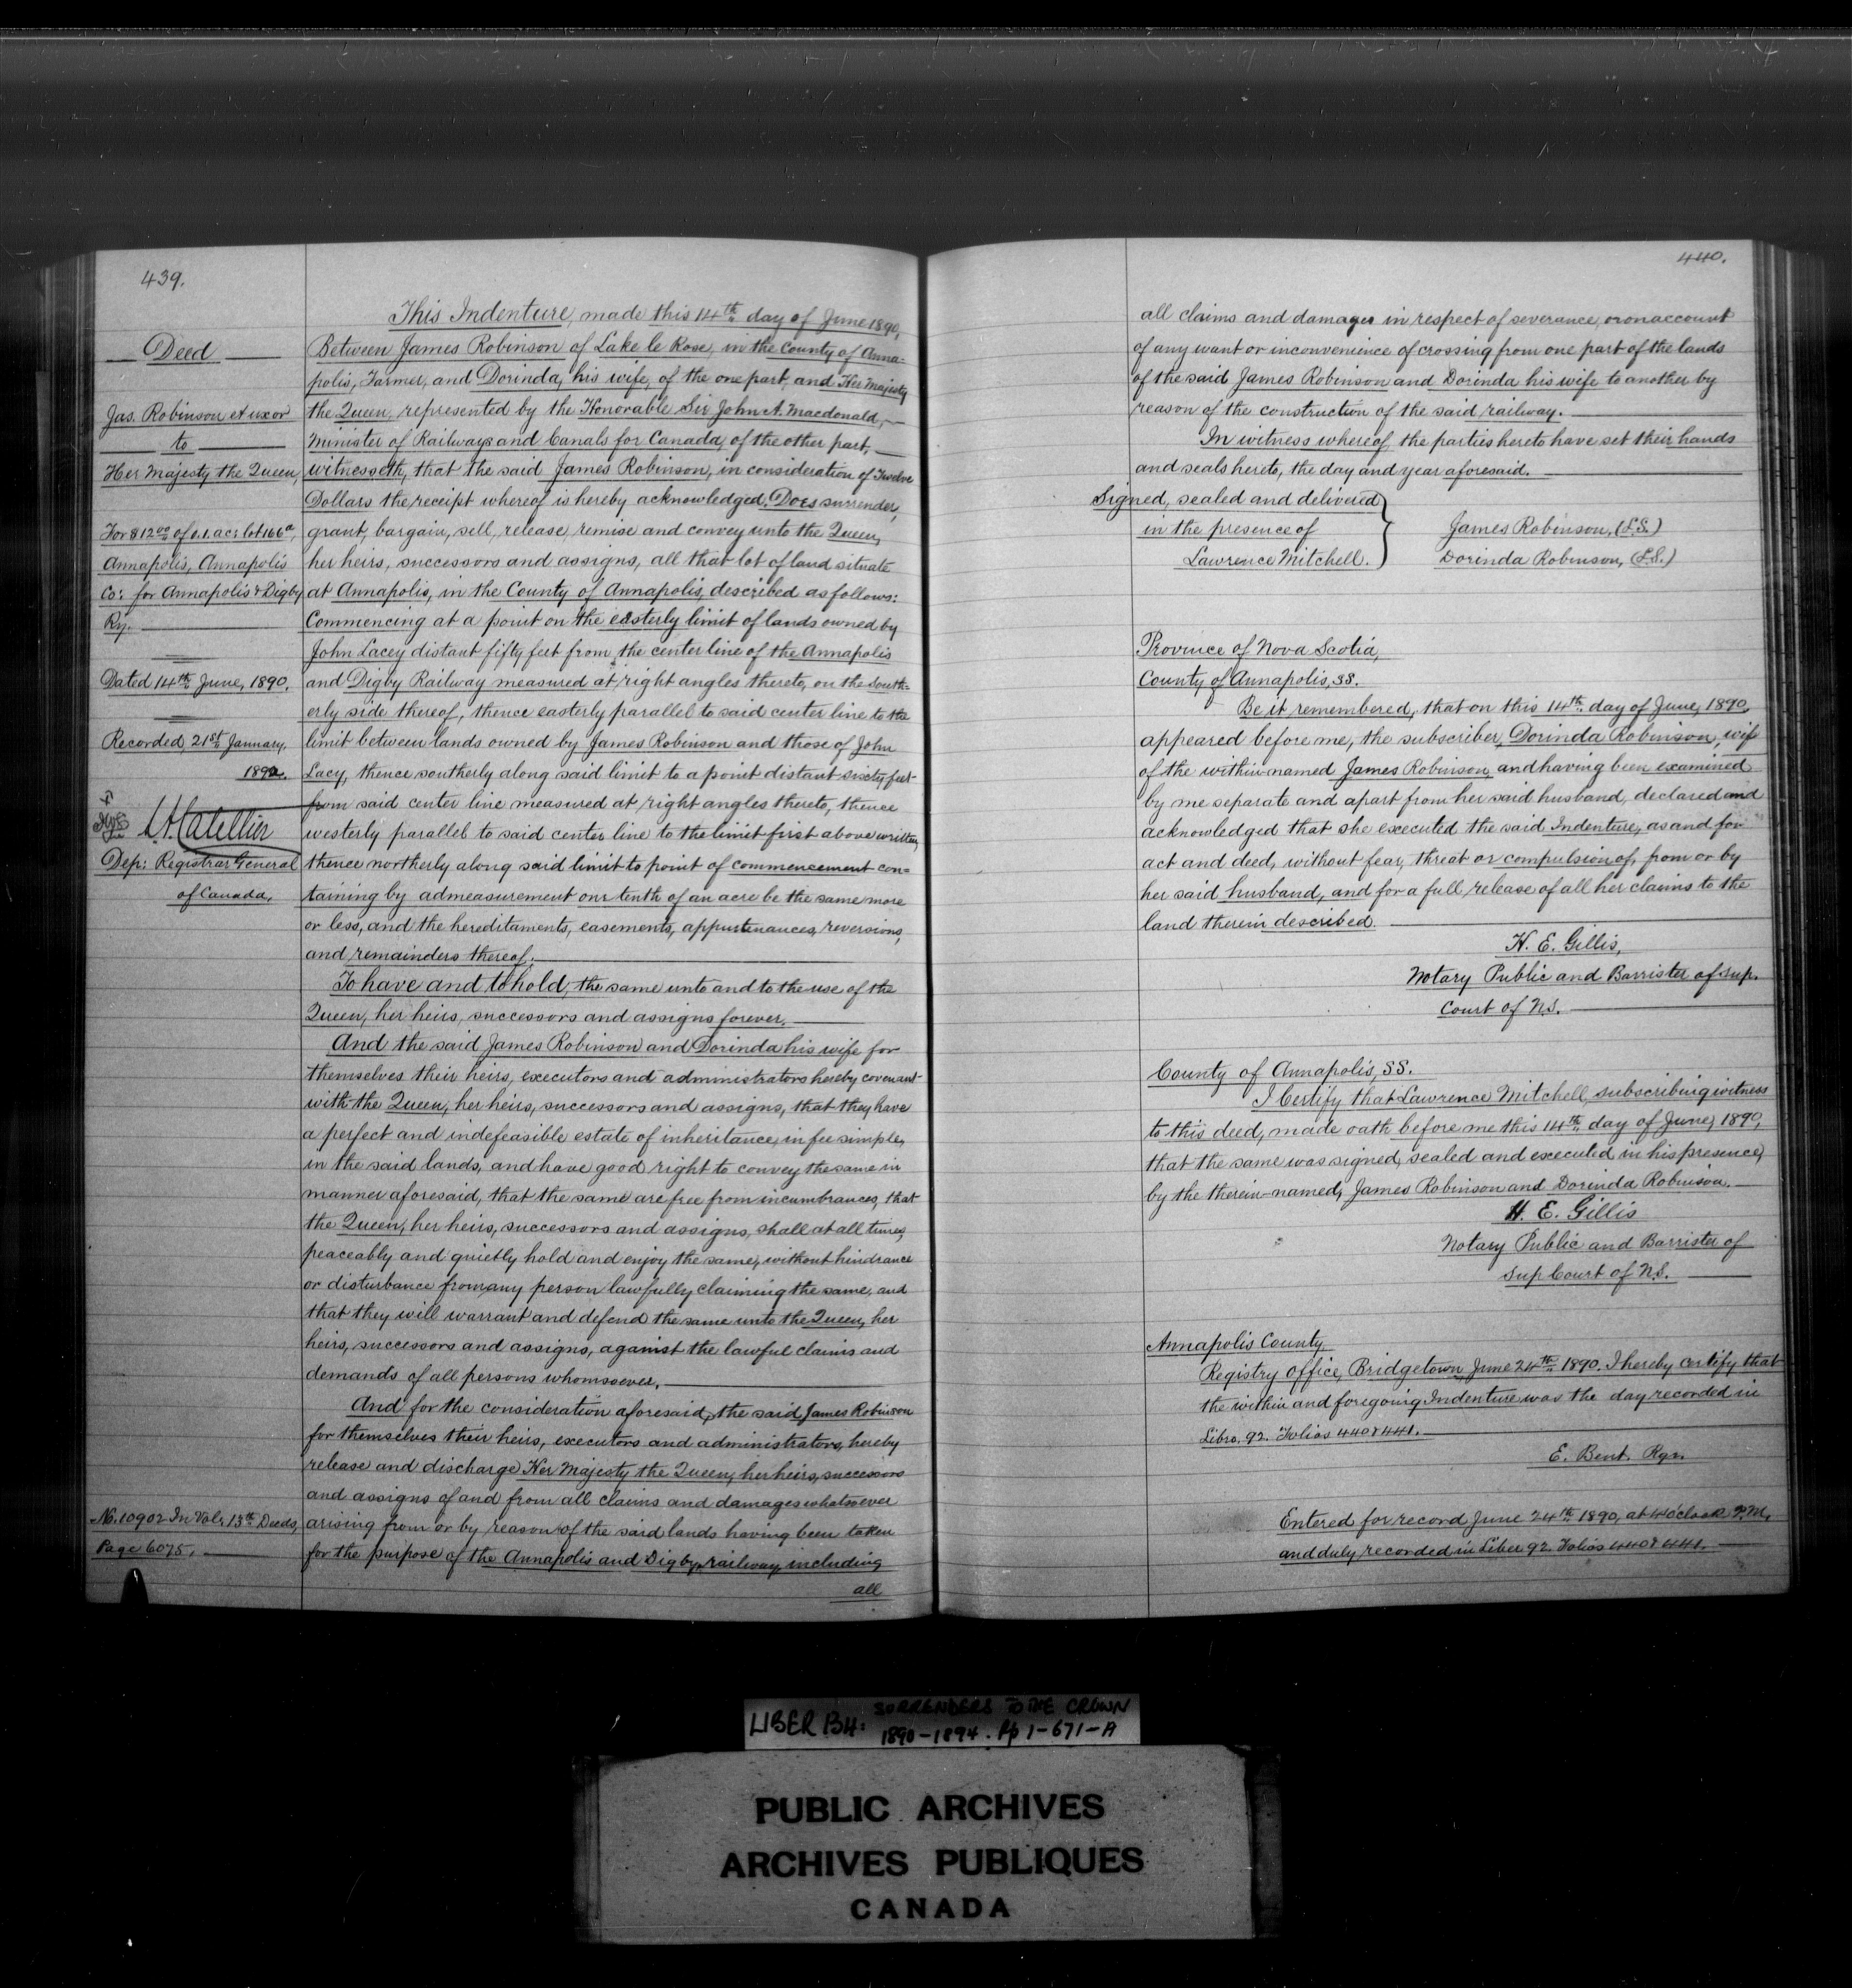 439.
Deed
Jas. Robinson et uxor
to
Her Majesty the Queen,
For $12 00/100 of 0.1. ac: lot 166a,
Annapolis, Annapolis
Co: for Annapolis & Digby
Ry.
Dated 14th June, 1890.
Recorded 21st January,
1892.
Dep: Registrar General
of Canada,
No. 10902 In Vol: 13th Deeds,
Page 6075,
This Indenture, made this 14th day of June 1890,
Between James Robinson of Lake le Rose, in the County of Anna-
polis, Farmer, and Dorinda, his wife, of the one part, and Her Majesty
the Queen, represented by the Honorable Sir John A. Macdonald,
Minister of Railways and Canals for Canada, of the other part,
witnesseth, that the said James Robinson, in consideration of Twelve
Dollars the receipt whereof is hereby acknowledged, Does surrender,
grant, bargain, sell, release, remise and convey unto the Queen,
her heirs, successors and assigns, all that lot of land situate
at Annapolis, in the County of Annapolis, described as follows:
Commencing at a point on the easterly limit of lands owned by
John Lacey distant fifty feet from the center line of the Annapolis
and Digby Railway measured at right angles thereto, on the south=
erly side thereof, thence easterly parallel to said center line to the
limit between lands owned by James Robinson and those of John
Lacy, thence southerly along said limit to a point distant sixty feet
from said center line measured at right angles thereto, thence
westerly parallel to said center line to the limit first above written,
thence northerly along said limit to point of commencement con=
taining by admeasurement one tenth of an acre be the same more
or less, and the hereditaments, easements, appurtenances, reversions,
and remainders thereof;
To have and to hold, the same unto and to the use of the
Queen, her heirs, successors and assigns forever,
And the said James Robinson and Dorinda his wife for
themselves their heirs, executors and administrators hereby covenant
with the Queen, her heirs, successors and assigns, that they have
a perfect and indefeasible estate of inheritance, in fee simple,
in the said lands, and have good right to convey the same in
manner aforesaid, that the same are free from incumbrances, that
the Queen, her heirs, successors and assigns, shall at all times,
peaceably and quietly hold and enjoy the same, without hindrance
or disturbance from any person lawfully claiming the same, and
that they will warrant and defend the same unto the Queen, her
heirs, successors and assigns, against the lawful claims and
demands of all persons whomsoever.
And for the consideration aforesaid, the said James Robinson
for themselves their heirs, executors and administrators, hereby
release and discharge Her Majesty the Queen, her heirs, successors
and assigns of and from all claims and damages whatsoever
arising from or by reason of the said lands having been taken
for the purpose of the Annapolis and Digby railway, including
all
440.
all claims and damages in respect of severance, or on account
of any want or inconvenience of crossing from one part of the lands
of the said James Robinson and Dorinda his wife to another by
reason of the construction of the said railway.
In witness whereof, the parties hereto have set their hands
and seals hereto, the day and year aforesaid.
Signed, sealed and delivered
in the presence of
Lawrence Mitchell.
James Robinson, (L.S.)
Dorinda Robinson, (L.S.)
Province of Nova Scotia,
County of Annapolis, SS.
Be it remembered, that on this 14th day of June, 1890,
appeared before me, the subscriber, Dorinda Robinson, wife
of the within-named James Robinson, and having been examined
by me separate and apart from her said husband, declared and
acknowledged that she executed the said Indenture, as and for
act and deed, without fear, threat or compulsion of, from or by
her said husband, and for a full release of all her claims to the
land therein described.
H. E. Gillis,
Notary Public and Barrister of Sup.
Court of N.S.
County of Annapolis, SS.
I Certify that Lawrence Mitchell subscribing witness
to this deed, made oath before me this 14th day of June, 1890,
that the same was signed, sealed and executed in his presence,
by the therein-named, James Robinson and Dorinda Robinson.
H. E. Gillis
Notary Public and Barrister of
Sup Court of N.S.
Annapolis County
Registry Office, Bridgetown, June 24th 1890. I hereby certify that
the within and foregoing Indenture was the day recorded in
Libro. 92. Folios 440 & 441.
E. Bent. Rgr.
Entered for record June 24th 1890, at 4 o'clock P.M,
and duly recorded in Liber 92. Folios 440 & 441.
LIBER B4: SURRENDERS TO THE CROWN
1890-1894. Pp 1-671-A
PUBLIC ARCHIVES
ARCHIVES PUBLIQUES
CANADA